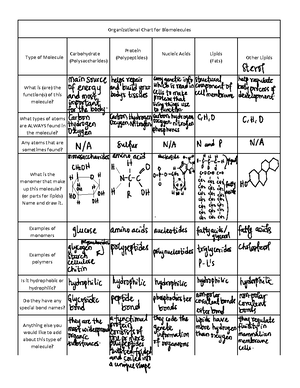 Organizational Chart for Biomolecules
Type of Molecule
Carbohydrate
(Polysaccharides)
Protein
(Polypeptides)
Nucleic Acids
Lipids
(Fats)
Other Lipids
Sterol
What is (are) the
function(s) of this
molecule?
main source
of energy
and most
important
for the body
helps repair
and build your
body's tissues
structural
component of
cell membrane
help regulate
process of
development
What types of atoms
are ALWAYS found in
the molecule?
Carbon
Hydrogen
Oxygen
Carbon, Hydrogen
Oxygen, Nitrogen
carbon, hydrogen
oxygen, nitrogen
phosphorus
C, H, O
C, H, O
Any atoms that are
sometimes found?
N/A
Sulfur
N/A
N and P
N/A
What is the
monomer that make
up this molecule?
(or parts for lipids)
Name and draw it.
monosaccharides
amino acid
nucleotide
Examples of
monomers
glucose
amino acids
nucleotides
fatty acids/
glycerol
fatty acids
Examples of
polymers
glycogen
starch
cellulose
chitin
polypeptides
polynucleotides
triglycerides
P-L's
cholesterol
Is it hydrophobic or
hydrophilic?
hydrophilic
hydrophilic
hydrophilic
hydrophilic
hydrophilic
Do they have any
special bond names?
glycosidic
bond
peptide
bond
phosphodiester
bonds
non-polar
covalent
bonds
ester bond
non-polar
covalent
bonds
Anything else you
would like to add
about this type of
molecule?
they are the
most widespread
organic
substances
a functional
protein
consists of
one or more
polypeptides
twisted, folded
and coiled into
a unique shape
they code the
genetic
information
of organisms
lipids have
more hydrogen
than oxygen
they regulate
fluidity in
mammalian
membrane
cells